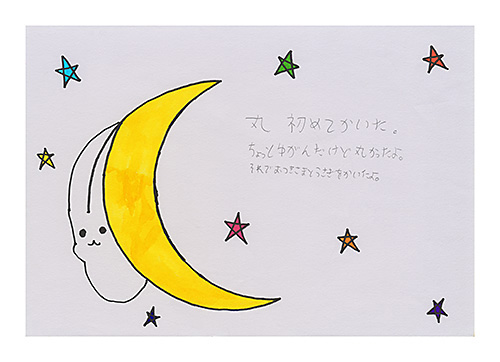 丸 初めてかいた。
ちょっとゆがんだけど丸かったよ。
それでおつきさまとうさぎをかいたよ。